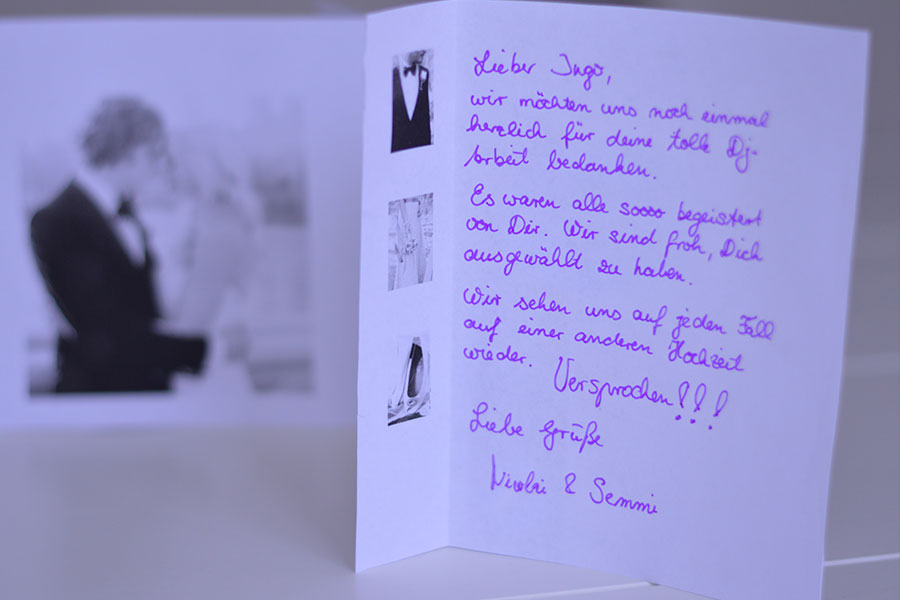 Lieber Ingo,
wir möchten uns noch einmal
herzlich für deine tolle Dj-
Arbeit bedanken.
Es waren alle soooo begeistert
von Dir. Wir sind froh, Dich
ausgewählt zu haben.
Wir sehen uns auf jeden Fall
auf einer anderen Hochzeit
wieder. Versprochen!!!
Liebe Grüße
Nicolai & Semmi